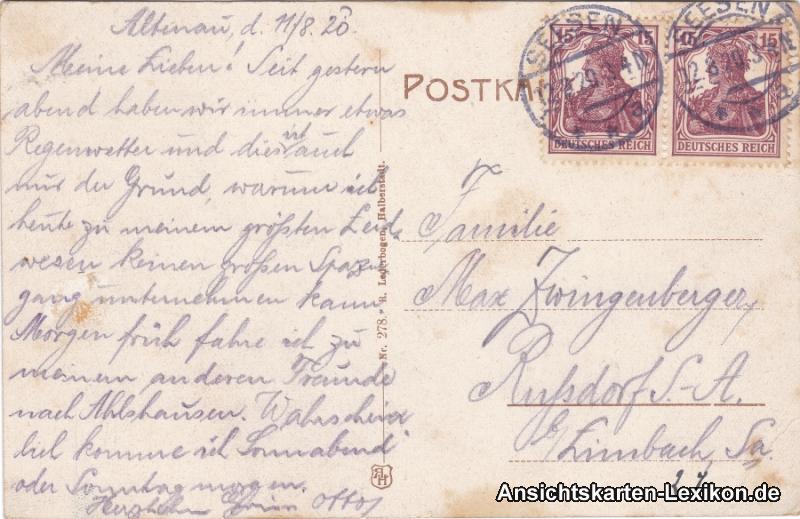 Altenau, d. 11/8. 20
Meine Lieben! Seit gestern
abend haben wir immer etwas
Regenwetter und dies ist auch
nur der Grund, warum ich
heute zu meinem größten Leid
wesen keinen großen Spazier
gang unternehmen kann
Morgen früh fahre ich zu
meinem anderen Freunde
nach Ahlshausen. Wahrschein
lich komme ich Sonnabend
oder Sonntag morgen.
Herzlichen Otto
Nr. 278. R. Lederbogen, Halberstadt.
POSTKA
SEESEN
12.8.20.3-4N
* a
SEESEN
12.8.20.3-4N
* a
15 15
DEUTSCHES REICH
15 15
DEUTSCHES REICH
Familie
Max Zwingenberger,
Rußdorf S.-A.
b/ Limbach Sa.
Ansichtskarten-Lexikon.de